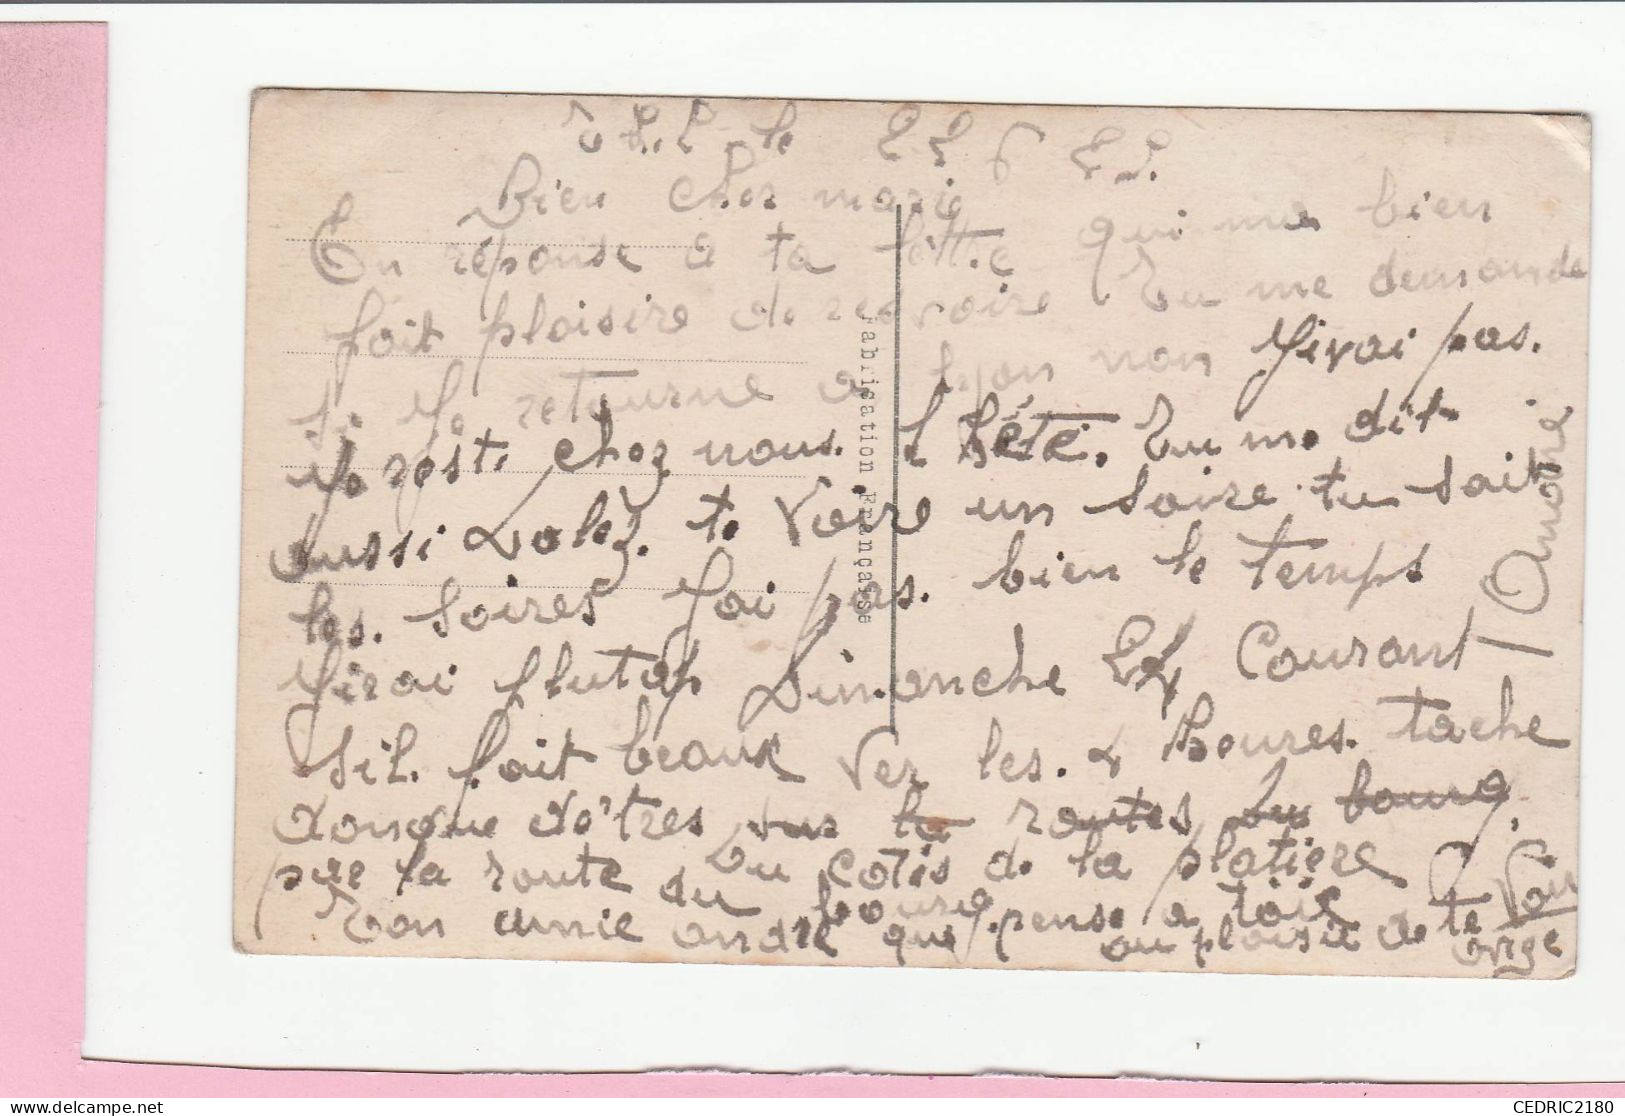 le 22 6 25.
Bien cher marie
En réponse a ta lettre qui me bien
fait plaisire de resevoire Tu me demande
si Je retourne a lyon non J'irai pas.
Je reste chez nous l'été. Tu me dit
aussi voles. te Voire un soire tu sait
les. soires J'ai pas. bien le temps
J'irai plutot Dimanche 24 Courant
s'il. fait beaux Ver les. 2 houres. tache
donque d'otres sur la routes du bourg.
par la route du cotis de la platiere
Ton amie andre que pense a toie
du bourg
au plaisir de te Voir
André
Fabrication Française
CEDRIC2180